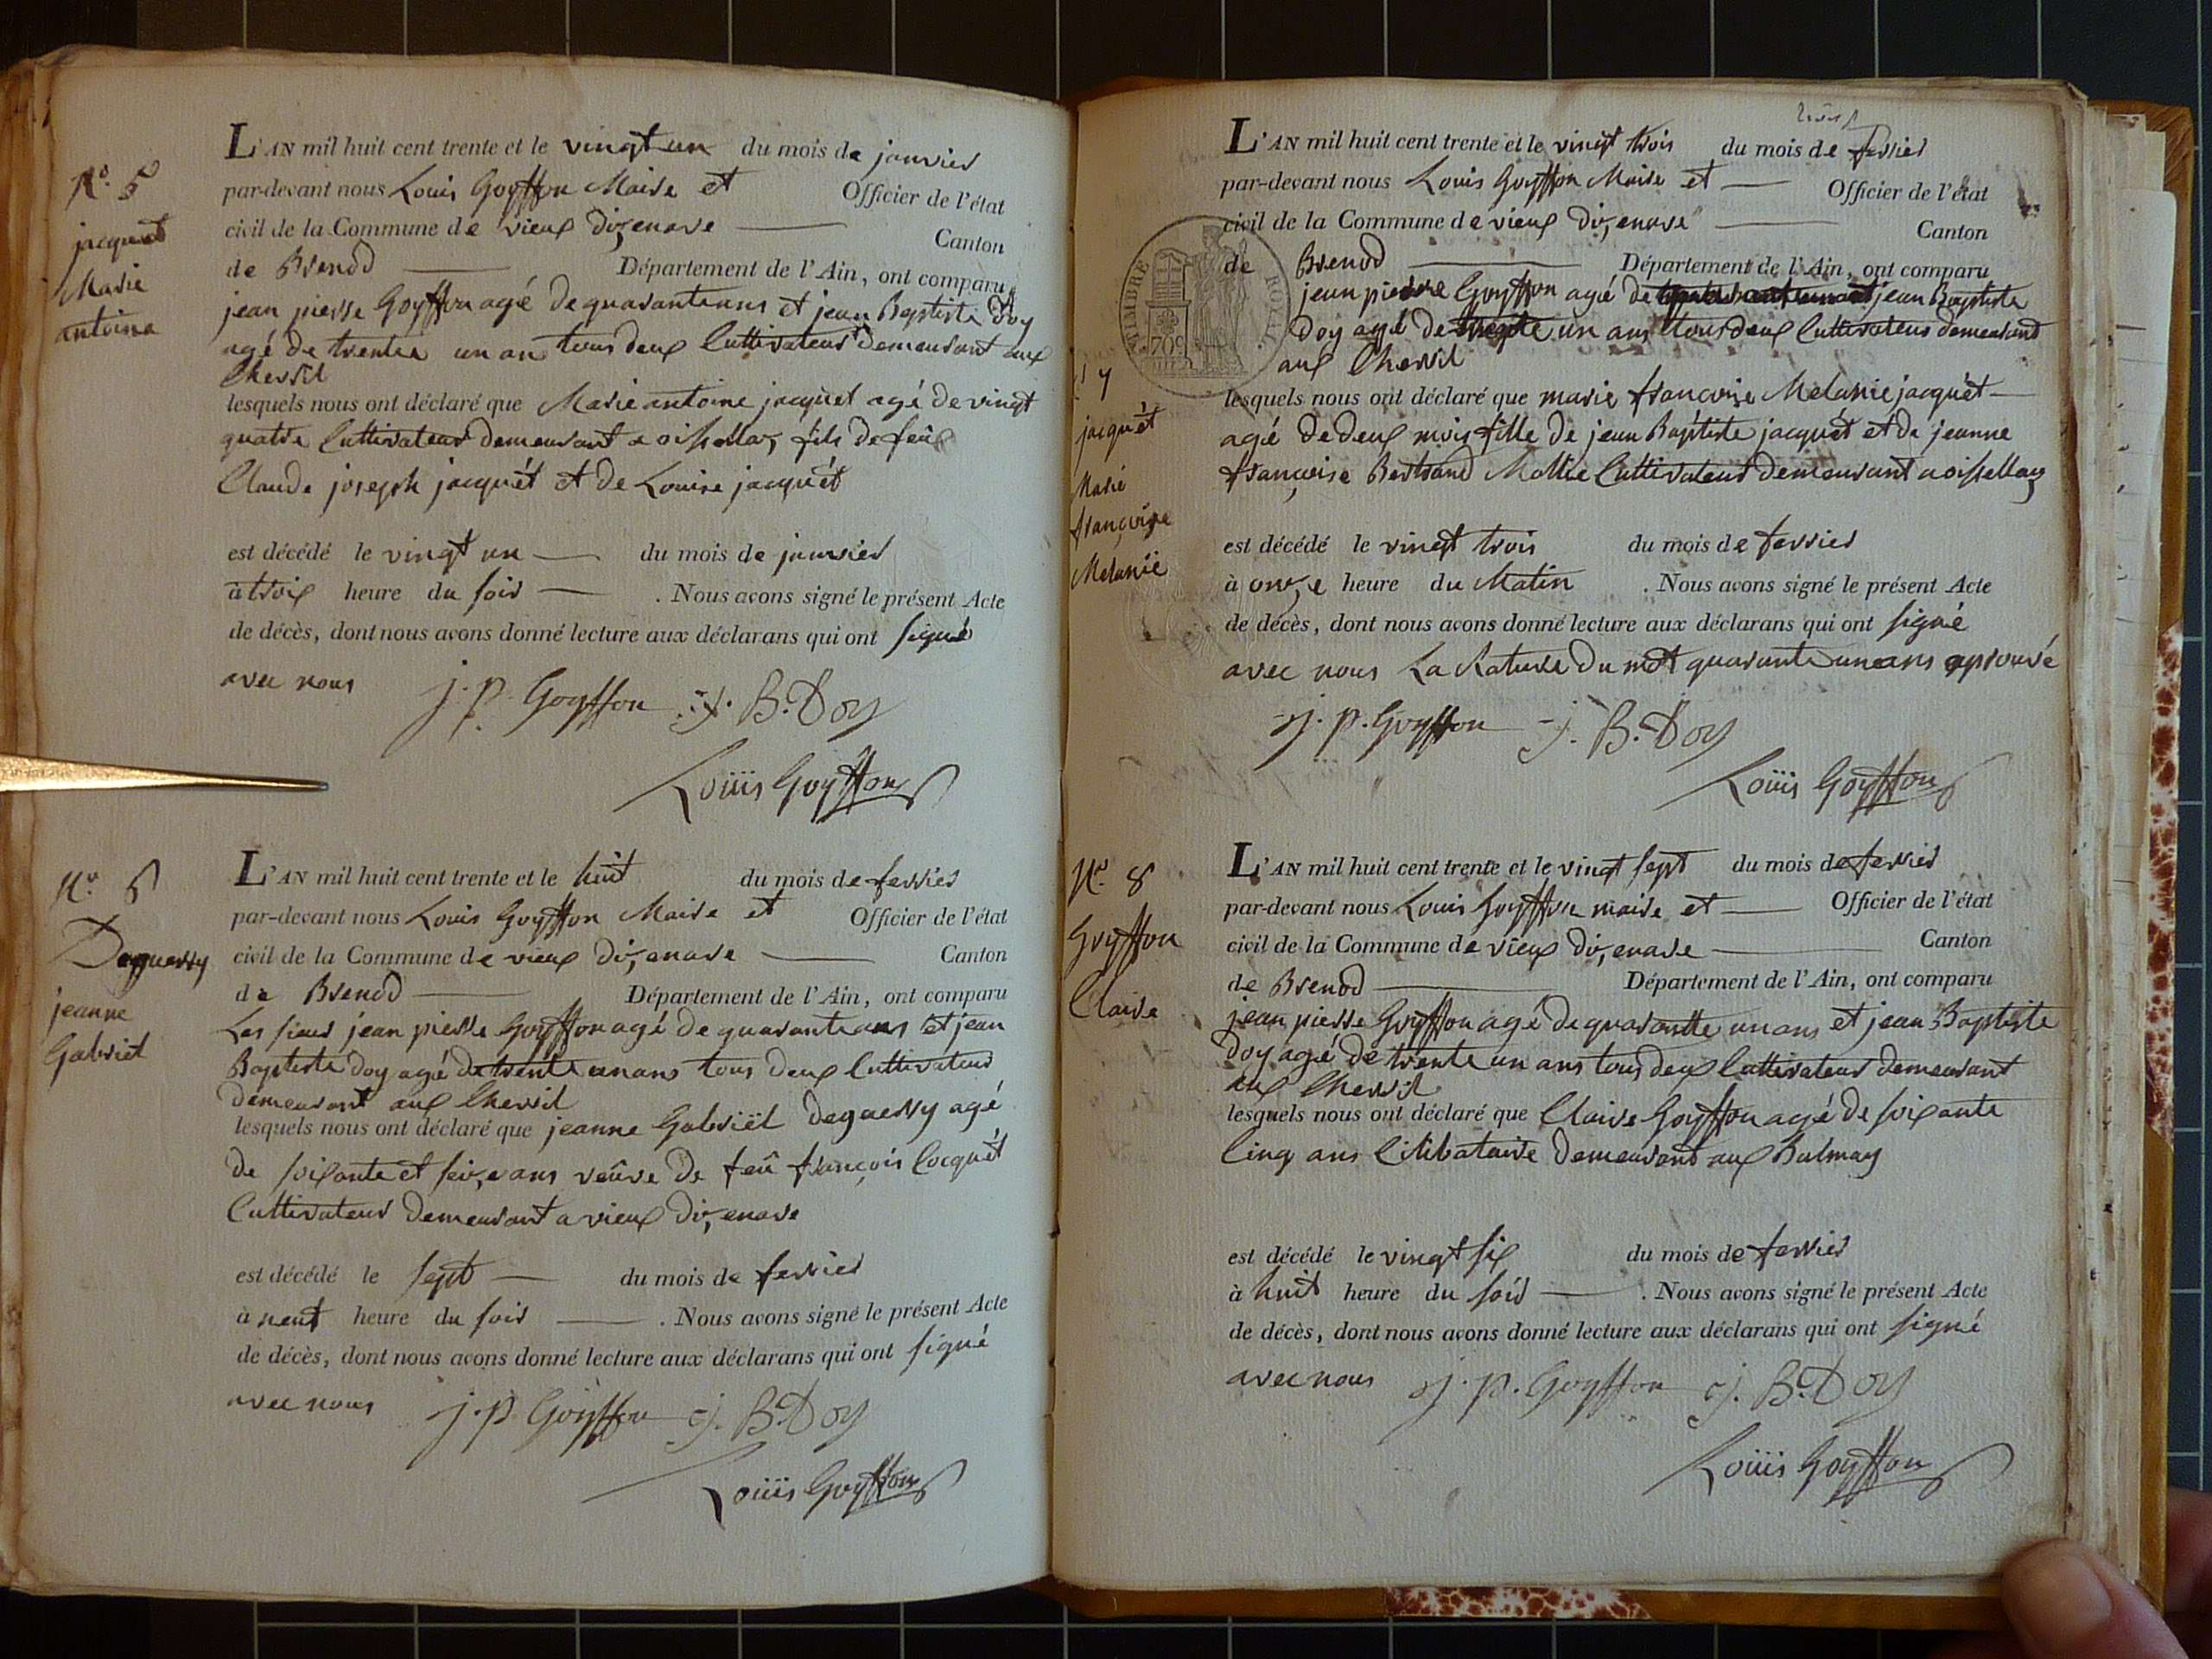 No. 5
jacquet
Marie
antoine
L'AN mil huit cent trente et le vingt un du mois de janvier
par-devant nous Louis Goyffon Maire et Officier de l'état
civil de la Commune de vieux dizenave Canton
de Brenod Département de l'Ain, ont comparu
jean pierre Goyffon agé de quarante ans et jean Baptiste Doy
agé de trente un an tous deux Cultivateur Demeurant aux
Chevril
lesquels nous ont déclaré que Marie antoine jacquet agé de vingt
quatre Cultivateur demeurant a oissellaz fils de feû
Claude joseph jacquét et de Louise jacquét
est décédé le vingt un du mois de janvier
à trois heure du soir . Nous avons signé le présent Acte
de décès, dont nous avons donné lecture aux déclarans qui ont signé
avec nous j. p. Goyffon j. B. Doy
Loüis Goyffon
No. 6
Deguerry
jeanne
Gabriel
L'AN mil huit cent trente et le huit du mois de fevrier
par-devant nous Louis Goyffon Maire et Officier de l'état
civil de la Commune de vieux dizenave Canton
de Brenod Département de l'Ain, ont comparu
Les sieur jean pierre Goyffon agé de quarante ans et jean
Baptiste Doy agé de trente un ans tous deux Cultivateur
demeurant aux Chevril
lesquels nous ont déclaré que jeanne Gabriël deguerry agé
de soixante et seize ans veûve de feû françois Cocquét
Cultivateur Demeurant a vieux dizenave
est décédé le sept du mois de fevrier
à neuf heure du soir . Nous avons signé le présent Acte
de décès, dont nous avons donné lecture aux déclarans qui ont signé
avec nous j. p. Goyffon j. B. Doy
Loüis Goyffon
7
jacquét
Marie
françoise
Melanie
L'AN mil huit cent trente et le vingt trois du mois de fevrier
par-devant nous Louis Goyffon Maire et Officier de l'état
civil de la Commune de vieux dizenave Canton
de Brenod Département de l'Ain, ont comparu
TIMBRE ROYAL
70c
jean pierre Goyffon agé de jean Baptiste
Doy agé de trente un ans tous deux Cultivateur demeurant
aux Chevril
lesquels nous ont déclaré que marie françoise Melanie jacquét
agé de deux mois fille de jean Baptiste jacquét et de jeanne
françoise Bertrand Cultivateur demeurant a oissellaz
est décédé le vingt trois du mois de fevrier
à onze heure du Matin . Nous avons signé le présent Acte
de décès, dont nous avons donné lecture aux déclarans qui ont signé
avec nous La Rature du mot quarante un ans aprouvé
j. p. Goyffon j. B. Doy
Loüis Goyffon
No. 8
Goyffon
Claire
L'AN mil huit cent trente et le vingt sept du mois de fevrier
par-devant nous Louis Goyffon maire et Officier de l'état
civil de la Commune de vieux dizenave Canton
de Brenod Département de l'Ain, ont comparu
jean pierre Goyffon agé de quarantte un ans et jean Baptiste
Doy agé de trente un ans tous deux Cultivateur demeurant
aux Chevril
lesquels nous ont déclaré que Claire Goyffon agé de soixante
Cinq ans Celibataire Demeurant aux Balmay
est décédé le vingt six du mois de fevrier
à huit heure du soir . Nous avons signé le présent Acte
de décès, dont nous avons donné lecture aux déclarans qui ont signé
avec nous j. p. Goyffon j. B. Doy
Loüis Goyffon